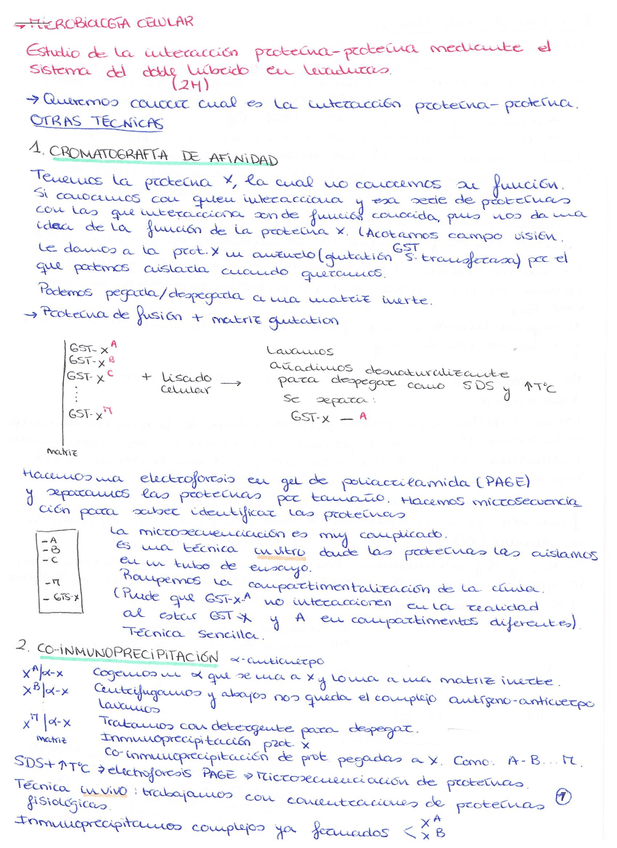 MICROBIOLOGÍA CELULAR
Estudio de la interacción proteína-proteína mediante el
sistema del doble híbrido en levaduras.
(2H)
→ Queremos conocer cual es la interacción proteína-proteína.
OTRAS TÉCNICAS
1. CROMATOGRAFÍA DE AFINIDAD
Tenemos la proteína X, la cual no conocemos su función.
Si conocemos con quien interacciona y esa serie de proteínas
con las que interacciona son de función conocida, pues nos da una
idea de la función de la proteína X. (Acotamos campo visión.
Le damos a la prot. X un anzuelo (glutatión GST S-transferasa) por el
que podemos aislarla cuando queramos.
Podemos pegarla/despegarla a una matriz inerte.
→ Proteína de fusión + matriz glutation
GST-X A
GST-X B
GST-X C
⋮
GST-X M
matriz
+ Lisado
celular →
Lavamos
añadimos desnaturalizante
para despegar como SDS y ↑TªC
Se separa:
GST-X — A
Hacemos una electroforesis en gel de poliacrilamida (PAGE)
y separamos las proteínas por tamaño. Hacemos microsecuencia
ción para saber identificar las proteínas
- A
- B
- C
- M
- GTS-X
La microsecuenciación es muy complicado.
Es una técnica in vitro donde las proteínas las aislamos
en un tubo de ensayo.
Rompemos la compartimentalización de la célula.
(Puede que GST-X-A no interaccionen en la realidad
al estar GST-X y A en compartimentos diferentes).
Técnica sencilla.
2. CO-INMUNOPRECIPITACIÓN α-anticuerpo
X A |α-X
X B |α-X
X M |α-X
matriz
Cogemos un α que se una a X y lo una a una matriz inerte.
Centrifugamos y abajo nos queda el complejo antígeno-anticuerpo
Lavamos
Tratamos con detergente para despegar.
Inmunoprecipitación prot. X
Co-inmunoprecipitación de prot pegadas a X. Como: A-B... M.
SDS+↑TªC → electroforesis PAGE → Microsecuenciación de proteínas.
Técnica in vivo: trabajamos con concentraciones de proteínas
fisiológicas.
1
Inmunoprecipitamos complejos ya formados < X A
X B